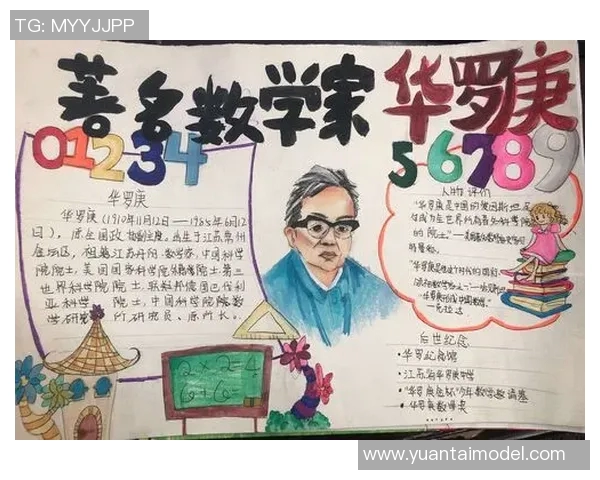 TG: MYYJJPP
著名数学家 华罗庚
01234
56789
华罗庚
华罗庚(1910年11月12日——1985年6月12
日),原全国政协副主席。出生于江苏常州
金坛区,祖籍江苏丹阳。数学家,中国科学
院院士,美国国家科学院外籍院士,第三
世界科学院院士,联邦德国巴伐利
亚科学院院士,中国科学院数
学研究所研究员、原所长。
人物评价
"华罗庚是中国的爱因斯坦,足
够成为全世界所有著名科学院
的院士。"
2×2=4
6+6=
后世纪念
·华罗庚纪念馆
·江苏省华罗庚中学
·"华罗庚金杯"少年数学邀请赛
·华罗庚数学奖
www.yuantaimodel.com